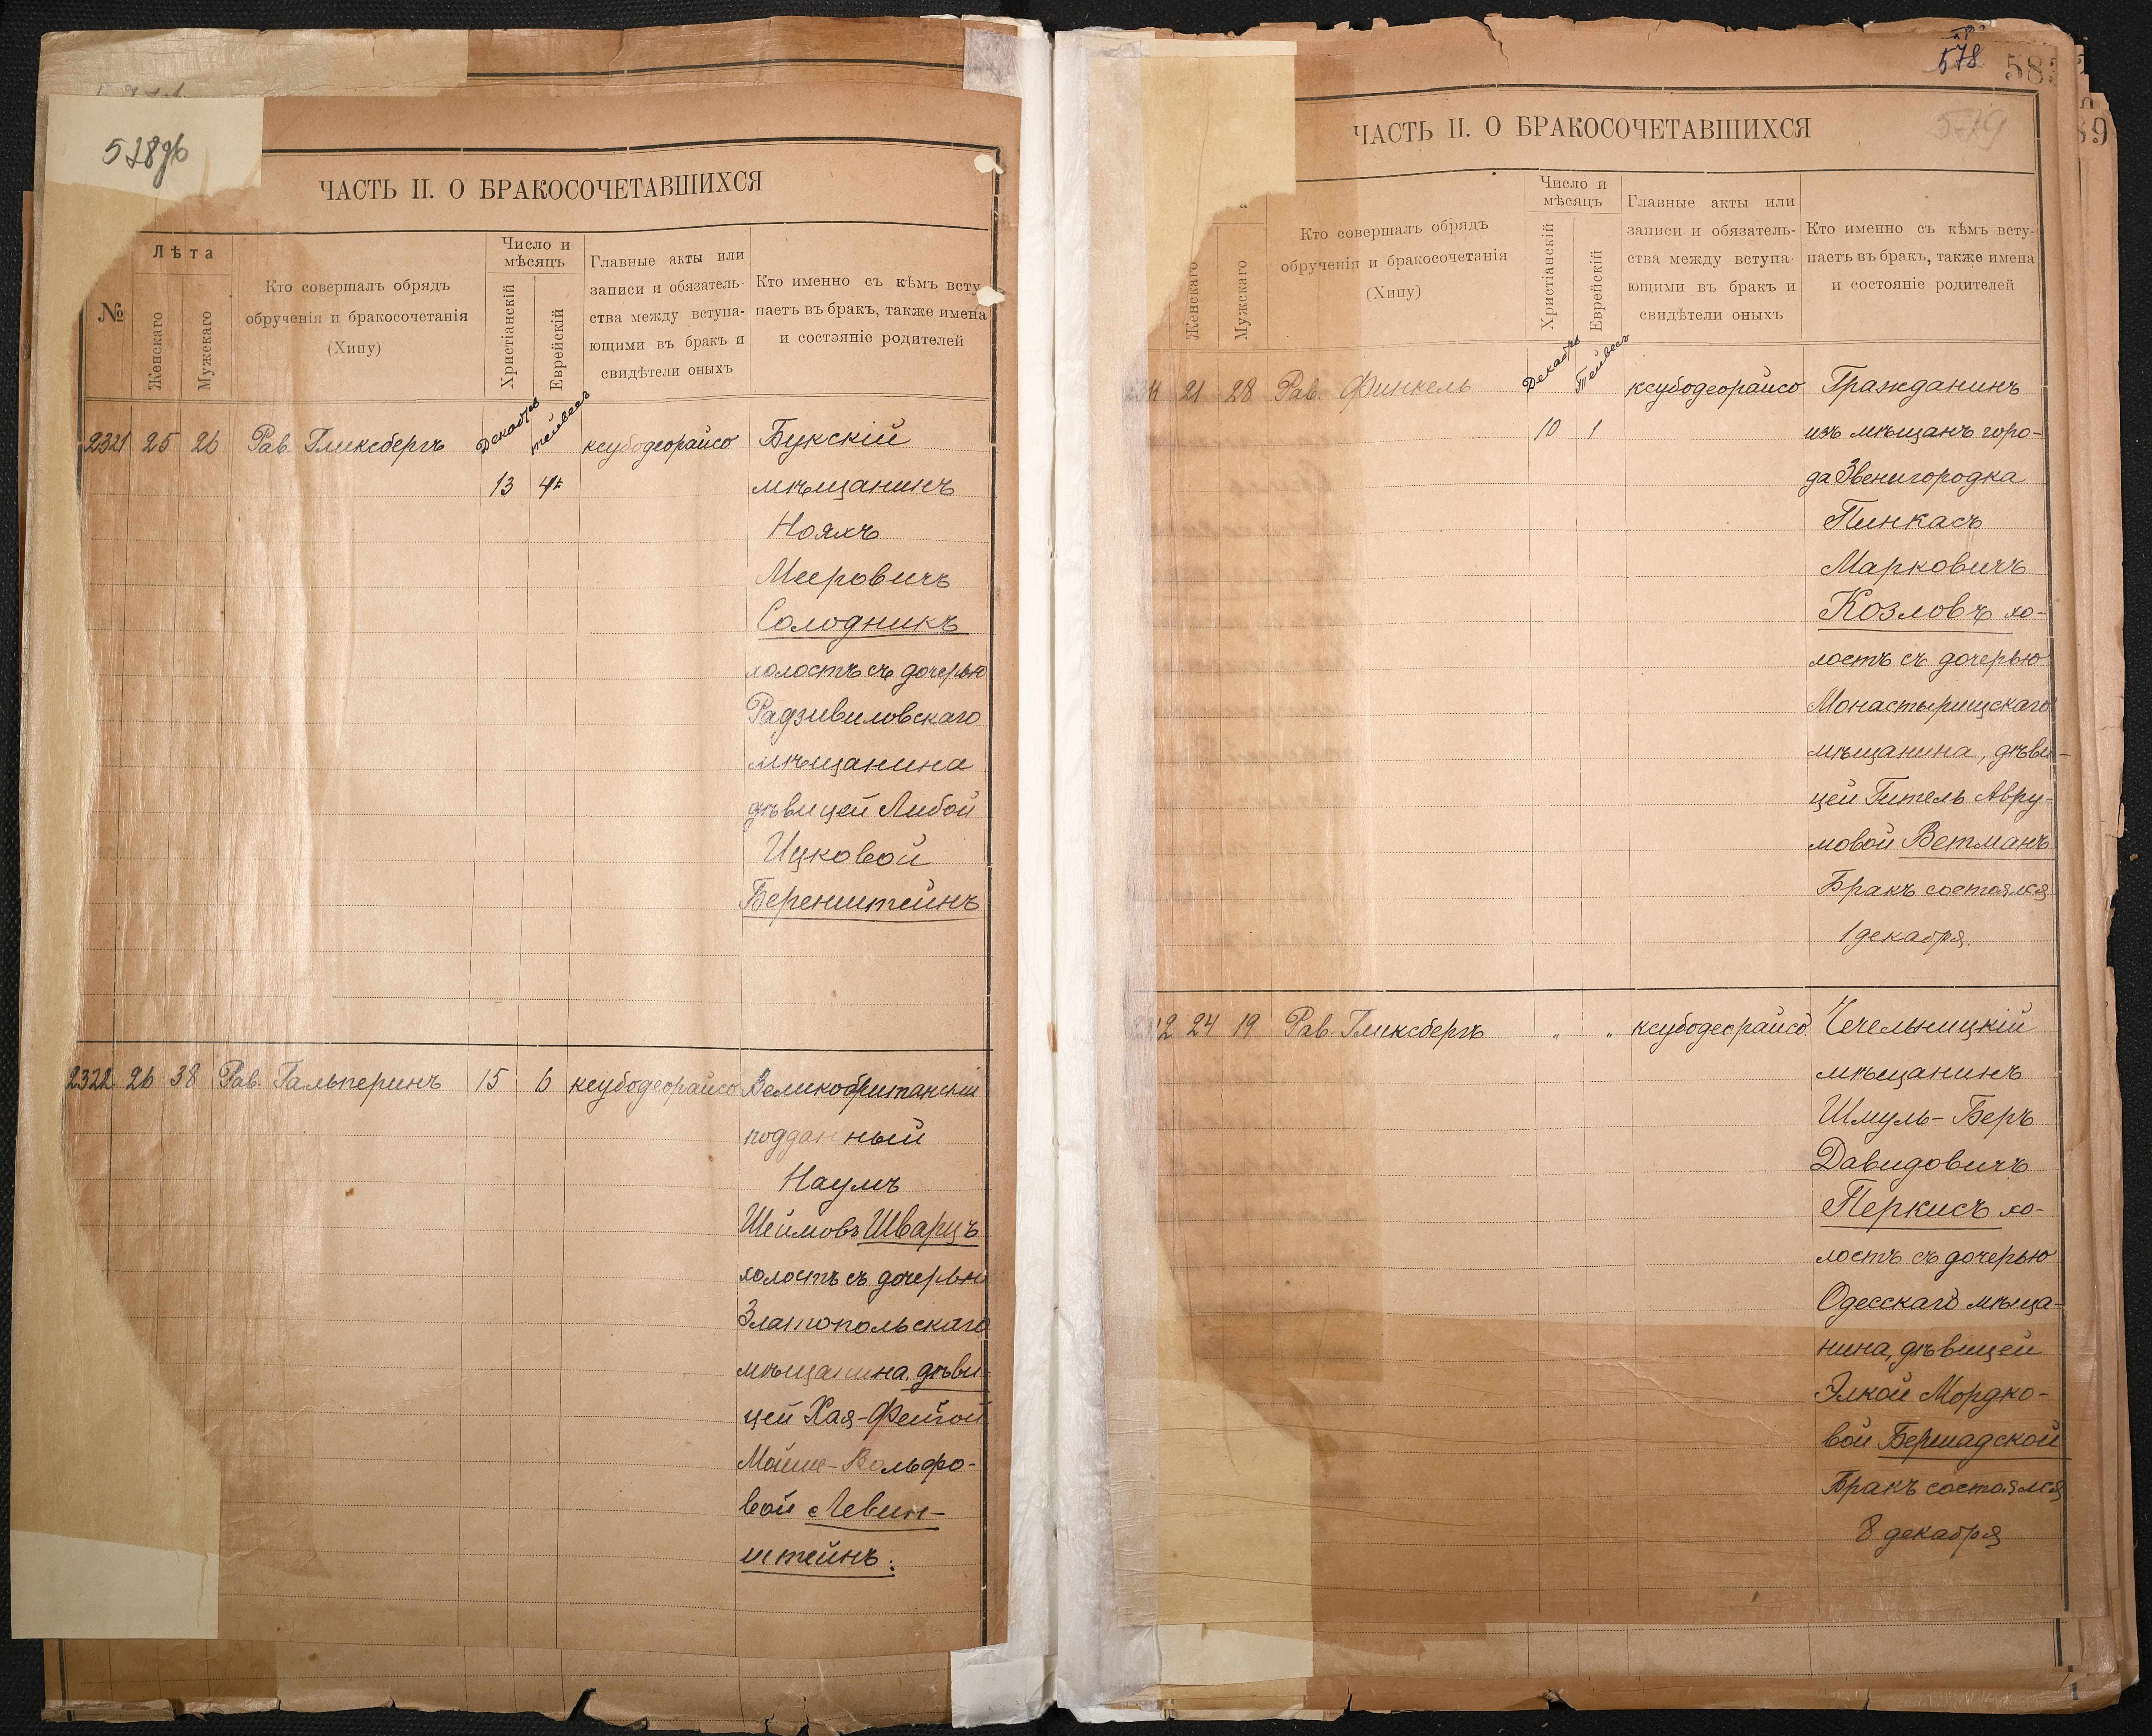 528об
ЧАСТЬ II. О БРАКОСОЧЕТАВШИХСЯ
№
Лѣта
Женскаго
Мужскаго
Кто совершалъ обрядъ
обрученія и бракосочетанія
(Хипу)
Число и
мѣсяцъ
Христіанскій
Еврейскій
Главные акты или
записи и обязатель-
ства между вступа-
ющими въ бракъ и
свидѣтели оныхъ
Кто именно съ кѣмъ всту
паетъ въ бракъ, также имена
и состояніе родителей
2321 25 26 Рав. Гликсбергъ Декабрь тейвесъ ксубодеорайсо Букскій
13 4 мѣщанинъ
Нояхъ
Мееровичъ
Солодникъ
холостъ съ дочерью
Радзивиловскаго
мѣщанина
дѣвицей Либой
Ицковой
Беренштейнъ
2322 26 38 Рав. Гальперинъ 15 6 ксубодеорайсо Великобританскій
подданный
Наумъ
Шеимовъ Шварцъ
холостъ съ дочерью
Златопольскаго
мѣщанина, дѣви-
цей Хая-Фейгой
Мойше-Вольфо-
вой Левин-
штейнъ.
578
58
579
ЧАСТЬ II. О БРАКОСОЧЕТАВШИХСЯ
Женскаго
Мужскаго
Кто совершалъ обрядъ
обрученія и бракосочетанія
(Хипу)
Число и
мѣсяцъ
Христіанскій
Еврейскій
Главные акты или
записи и обязатель-
ства между вступа-
ющими въ бракъ и
свидѣтели оныхъ
Кто именно съ кѣмъ всту-
паетъ въ бракъ, также имена
и состояніе родителей
21 28 Рав. Финкель Декабрь Тейвесъ ксубодеорайсо Гражданинъ
10 1 изъ мѣщанъ горо-
да Звенигородка
Пинкасъ
Марковичъ
Козловъ хо-
лостъ съ дочерью
Монастырищскаго
мѣщанина, дѣви-
цей Гитель Авру-
мовой Ветманъ
Бракъ состоялся
1 декабря.
24 19 Рав. Гликсбергъ " " ксубодеорайсо Чечельницкій
мѣщанинъ
Шмуль-Беръ
Давидовичъ
Перкисъ хо-
лостъ съ дочерью
Одесскаго мѣща-
нина, дѣвицей
Элкой Мордко-
вой Бершадской
Бракъ состоялся
8 декабря